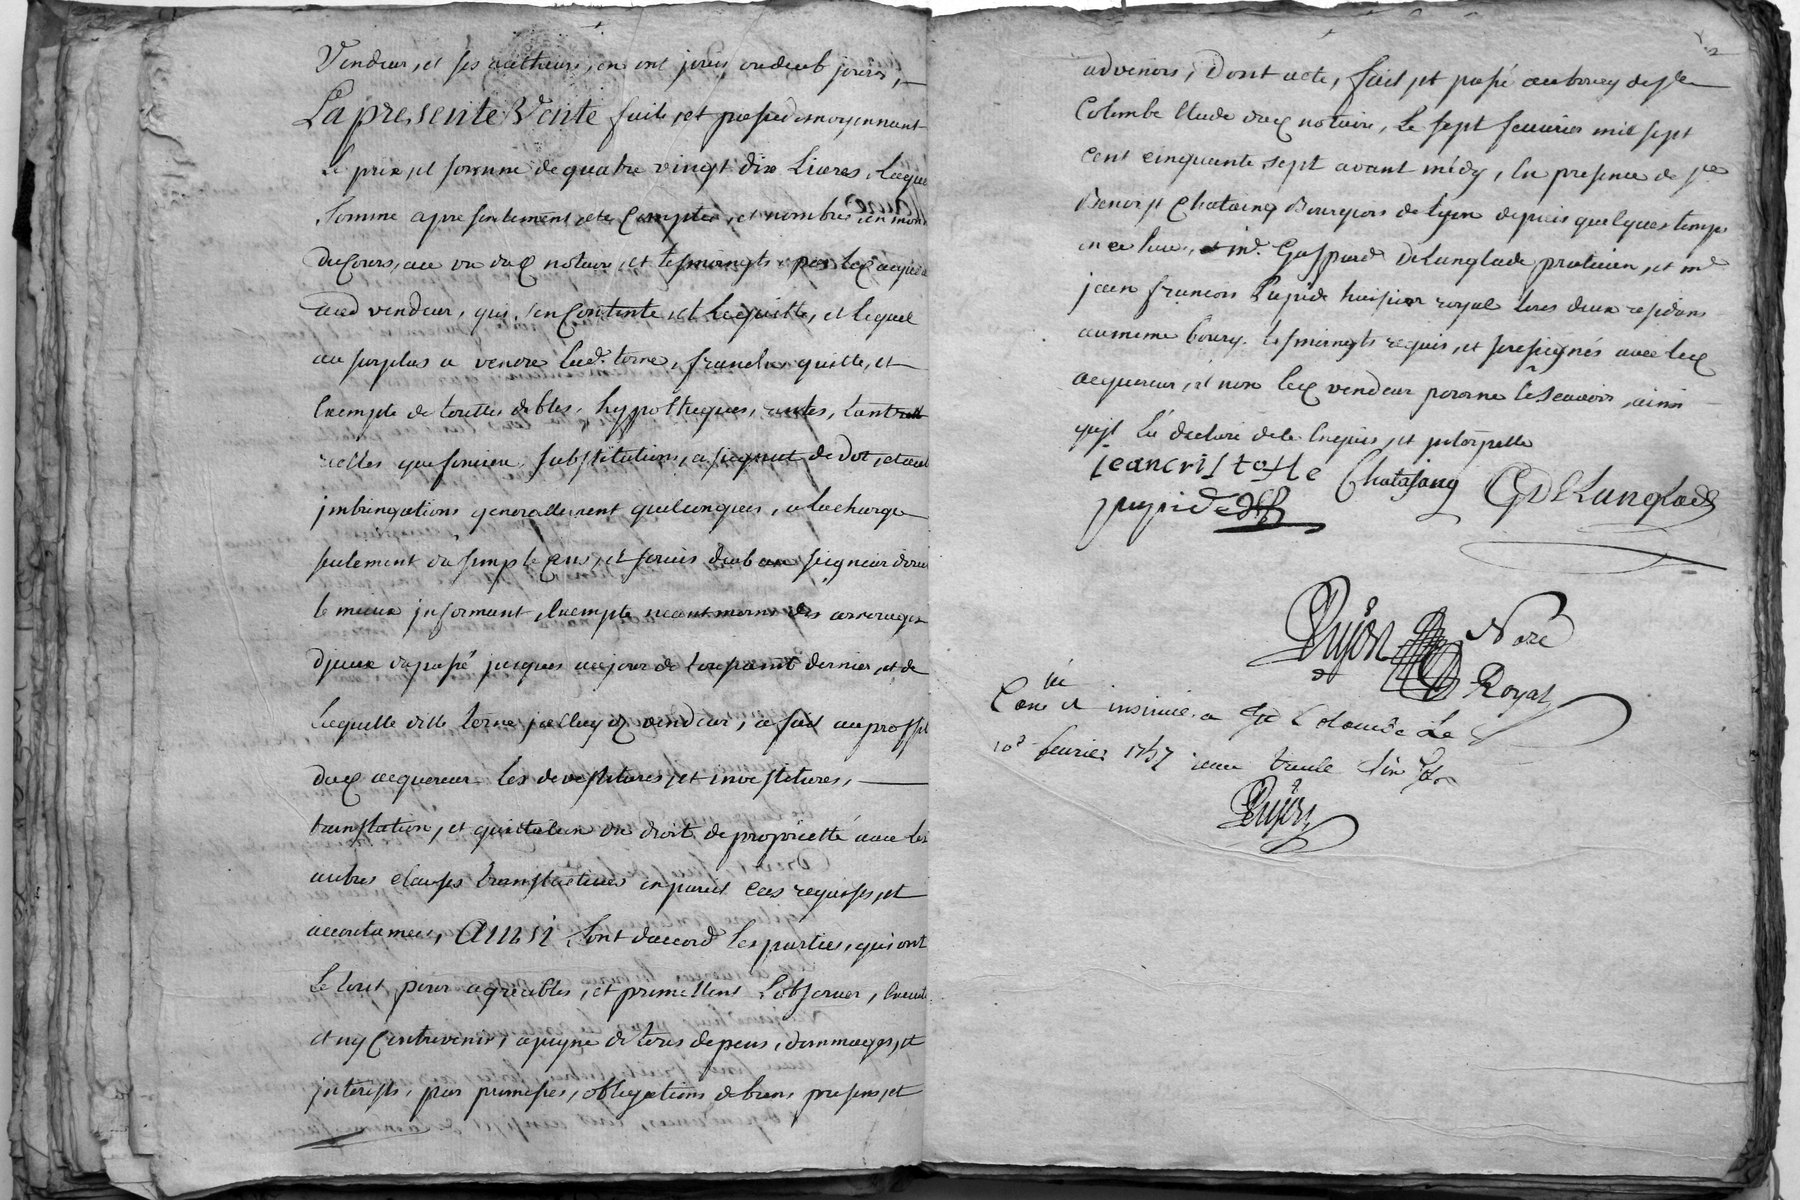 Vendeur, et ses autheurs, en ont jouy, ou deub jouir,
La presente Vente faite, et passée moyennant
Le prix, et somme de quatre vingt dix Livres, Laque
Somme a presentement ete Comptée, et nombrée en mon
du Cours, au vu dud notaire, et tesmoingts par led acque
aud vendeur, qui s'en Contente, et Lequitte, et lequel
au surplus a vendu lad. terre, franche quitte, et
Exempte de touttes debtes, hyppotheques,
substitutions, assignat de dot, et autres
jmbringations generallement quelconques, a La charge
seulement du simple Cens, et servis deub au seigneur direct
le mieux jnformant, Exempte neantmoins des arrerages
d'jceux du passé jusques au jour de toussaint dernier, et de
Laquelle ditte terre jcelluy d vendeur, a fait au proffit
dud acquereur les devestitures, et investitures,
translation, et quittation du droit de proprietté avec les
autres clauses translatives en pareil cas requises, et
accoutumées, Ainsi sont d'accord les parties, qui ont
Le tout pour agreables, et promettent L'observer,
et n'y Contrevenir, a peyne de tous depens, dommages, et
jnterests, par promesses, obligations de biens presens, et
advenirs, Dont acte, fait, et passé au bourg de Ste
Colombe Etude dud notaire, Le sept fevrier mil sept
Cent cinquante sept avant midy, En presence de Sr
Benoist Chataing Bourgeois de Lyon depuis quelques temps
en ce lieu, me. Gaspard DeLanglade praticien, et me
jean françois Pupide huissier royal tous deux residans
au meme bourg. tesmoingts requis, et soussignés avec led
acquereur, et non led vendeur pour ne le Scavoir, ainsi
qu'jl L'a declaré de ce Enquis, et jnterpellé
jean cristofle Chatajang GDeLanglade
pupide
Dujon Nore
Royal
Con.lé et insinué a Ste Colombe Le
10e fevrier 1757
Dujon